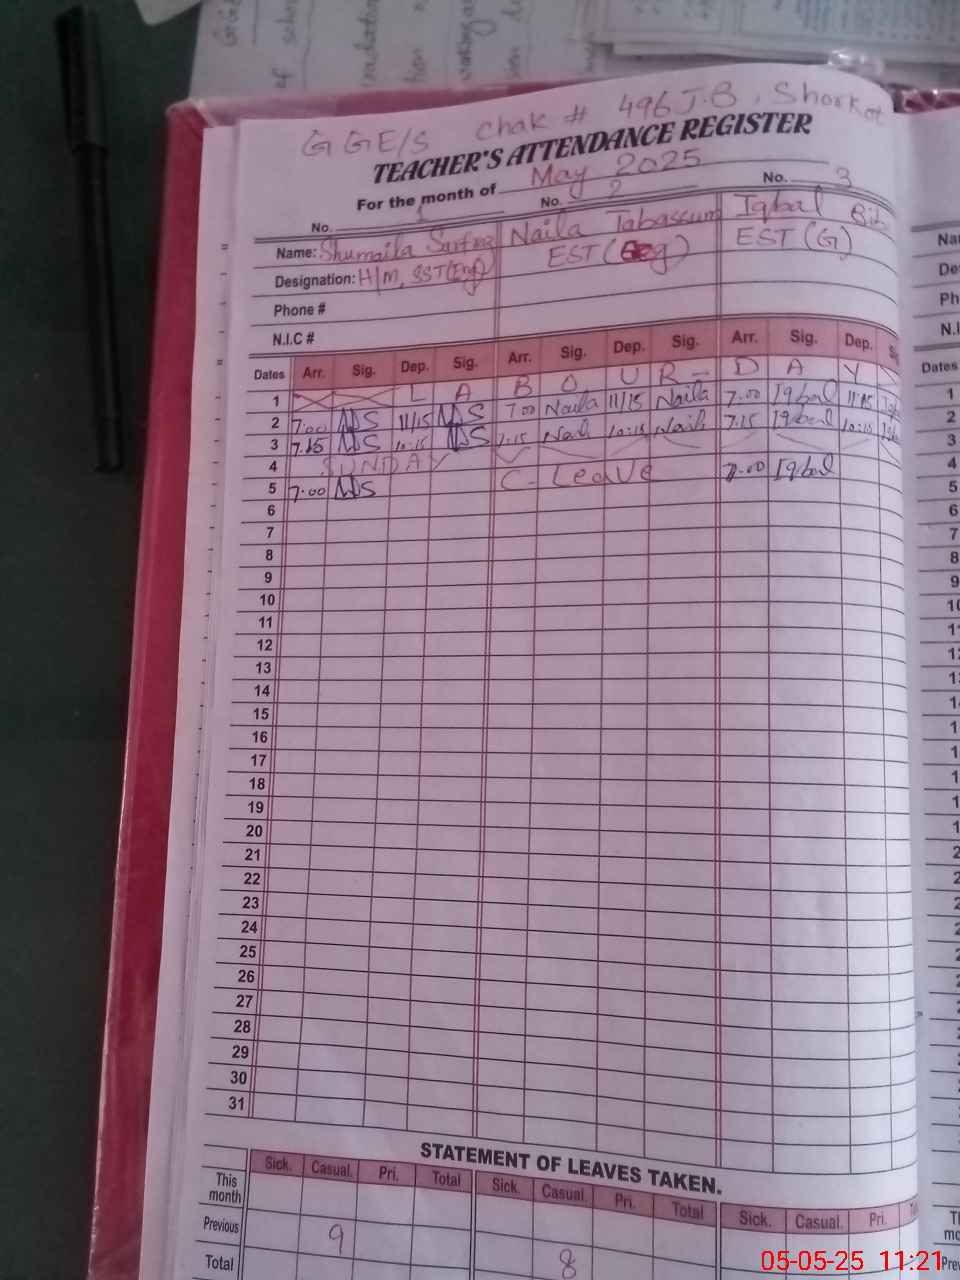 GGE/S Chak # 496 J.B, Shorkot
TEACHER'S ATTENDANCE REGISTER
For the month of May 2025
No. 1 No. 2 No. 3
Name: Shumaila Sarfraz Naila Tabassum Iqbal Bibi
Designation: H/M, SST(Eng) EST ( EST (G)
Phone #
N.I.C #
Dates Arr. Sig. Dep. Sig. Arr. Sig. Dep. Sig. Arr. Sig. Dep.
1 L A B O U R - D A Y
2 7:00 11/15 7:00 Naila 11/15 Naila 7:00 Iqbal 11:15
3 7.15 10:15 7.15 Nail 10:15 Naila 7.15 Iqbal 10:15
4 SUNDAY
5 7.00 C. Leave 7.00 Iqbal
6
7
8
9
10
11
12
13
14
15
16
17
18
19
20
21
22
23
24
25
26
27
28
29
30
31
STATEMENT OF LEAVES TAKEN.
Sick. Casual. Pri. Total Sick. Casual. Pri. Total Sick. Casual. Pri.
This month
Previous 9 8
Total
05-05-25 11:21